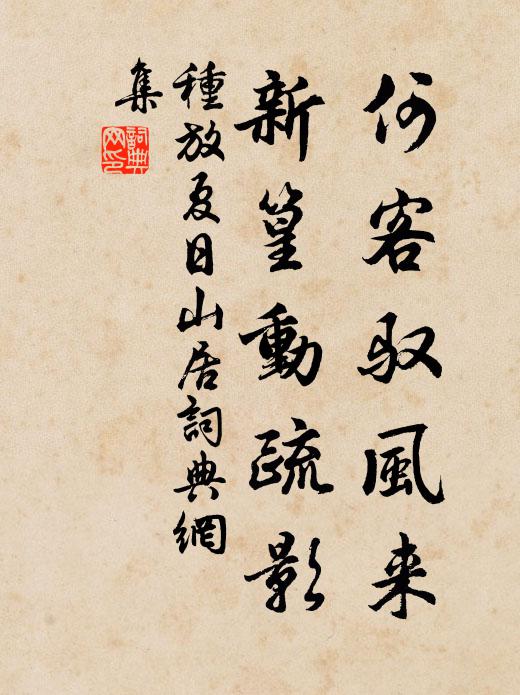 何客驭風来
新篁動疏影
種放夏日山居詞典網
集
詞典
网印